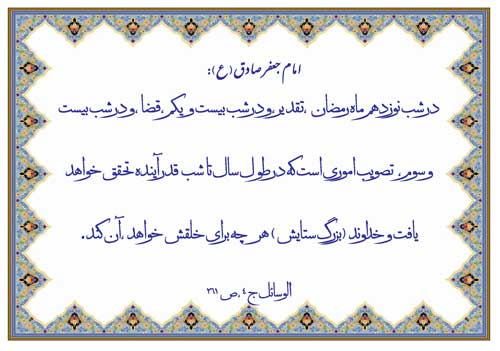 امام جعفر صادق (ع):
در شب نوزدهم ماه رمضان ، تقدیر، و در شب بیست و یکم ، قضا ، و در شب بیست
و سوم ، تصویب اموری است که در طول سال تا شب قدر آینده تحقق خواهد
یافت و خداوند (بزرگ ستایش ) هر چه برای خلقش خواهد ، آن کند .
الوسائل ج ۴ ، ص ۳۶۱